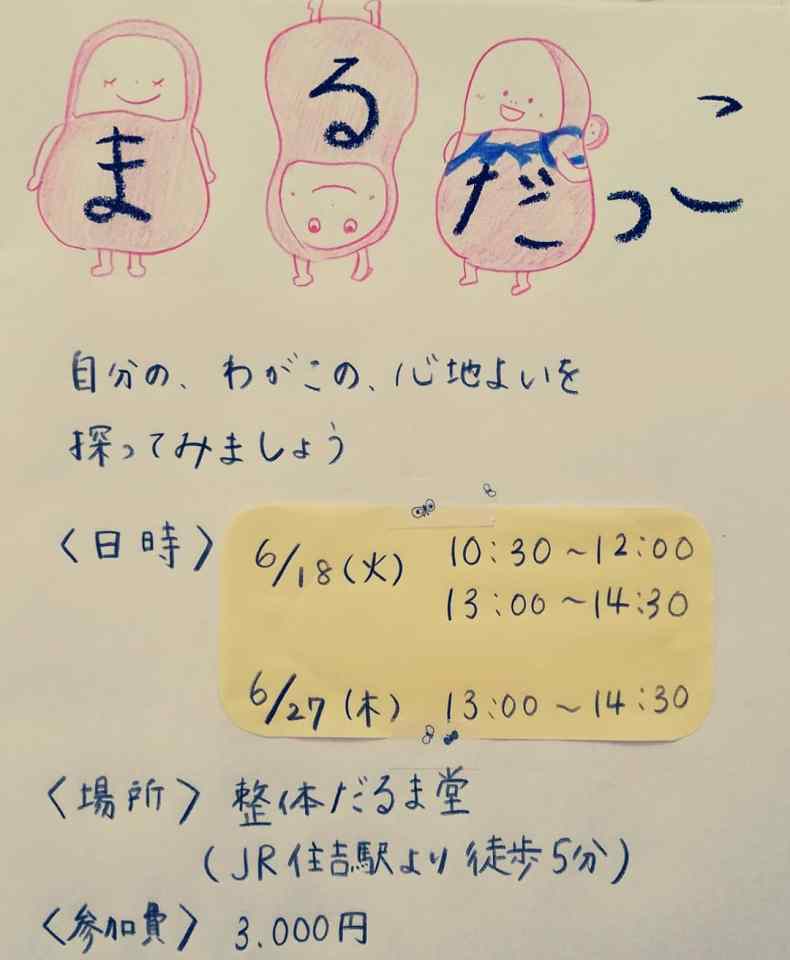 まるだっこ
自分の、わがこの、心地よいを
探ってみましょう
〈日時〉 6/18(火) 10:30~12:00
13:00~14:30
6/27(木) 13:00~14:30
〈場所〉 整体だるま堂
(JR住吉駅より徒歩5分)
〈参加費〉 3.000円